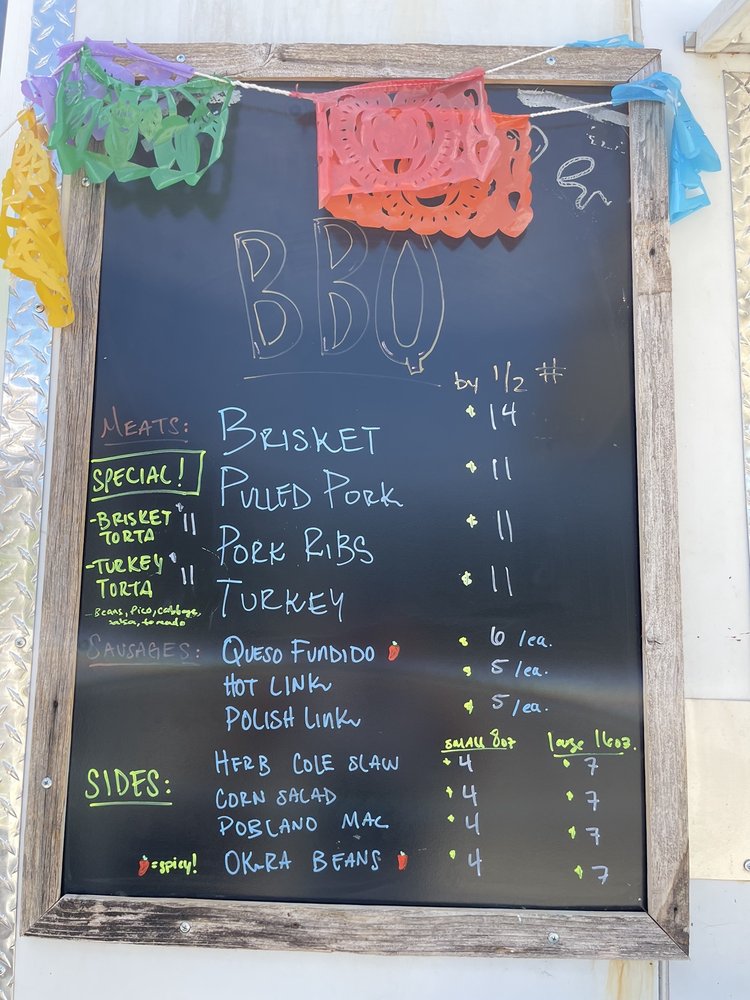 BBQ
by 1/2 #
MEATS: BRISKET $ 14
SPECIAL!
PULLED PORK $ 11
-BRISKET TORTA $11
PORK RIBS $ 11
-TURKEY TORTA $11
TURKEY $ 11
-Beans, Pico, Cabbage,
salsa, tomado
SAUSAGES: QUESO FUNDIDO $ 6 /ea.
HOT LINK $ 5 /ea.
POLISH LINK $ 5 /ea.
small 8oz large 16oz.
SIDES: HERB COLE SLAW $ 4 $ 7
CORN SALAD $ 4 $ 7
POBLANO MAC $ 4 $ 7
=spicy! OKRA BEANS $ 4 $ 7